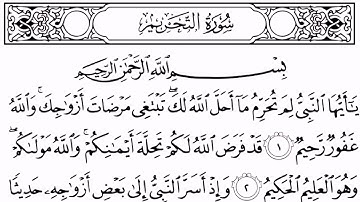 سُورَةُ التَّحْرِيمِ
بِسْمِ اللَّهِ الرَّحْمَٰنِ الرَّحِيمِ
يَٰٓأَيُّهَا ٱلنَّبِىُّ لِمَ تُحَرِّمُ مَآ أَحَلَّ ٱللَّهُ لَكَ ۖ تَبْتَغِى مَرْضَاتَ أَزْوَٰجِكَ ۚ وَٱللَّهُ
غَفُورٌ رَّحِيمٌ ١ قَدْ فَرَضَ ٱللَّهُ لَكُمْ تَحِلَّةَ أَيْمَٰنِكُمْ ۚ وَٱللَّهُ مَوْلَىٰكُمْ ۖ
وَهُوَ ٱلْعَلِيمُ ٱلْحَكِيمُ ٢ وَإِذْ أَسَرَّ ٱلنَّبِىُّ إِلَىٰ بَعْضِ أَزْوَٰجِهِۦ حَدِيثًا